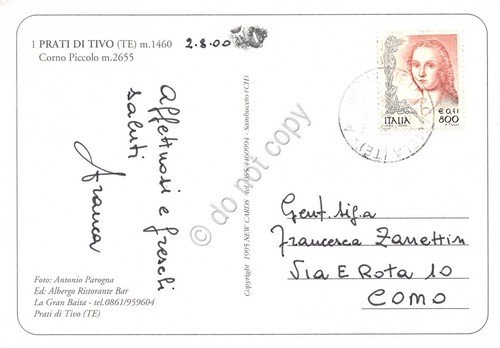 1 PRATI DI TIVO (TE) m.1460
Corno Piccolo m.2655
2.8.00
Affettuosi e freschi
saluti
Franca
Foto: Antonio Parogna
Ed: Albergo Ristorante Bar
La Gran Baita - tel.0861/959604
Prati di Tivo (TE)
Copyright 1995 NEW CARDS - Sambuceto (CH)
do not copy
€ 0,41
ITALIA 800
Gent. sig.a
Francesca Zanettin
Via E Rota 10
COMO